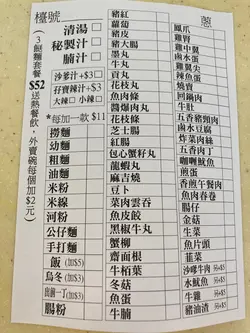 檯號
(3餸麵套餐$52送熱餐飲,外賣碗每個加$2元)
清湯
秘製汁
腩汁
沙爹汁+$3
孖寶辣汁+$3
大辣 小辣
*每加一款 $11
撈麵
幼麵
粗麵
油麵
米粉
米線
河粉
公仔麵
手打麵
飯(加$5)
烏冬(加$3)
出前一丁(加$3)
腸粉
豬紅
蘿蔔
豬皮
豬大腸
墨丸
牛丸
貢丸
花枝丸
魚腐
醬爆肉丸
花枝丸
芝士腸
紅腸
包心蟹籽丸
龍蝦丸
麻吉燒
豆卜
菜肉雲吞
魚皮餃
黑椒牛丸
蟹柳
齋面根
牛栢葉
冬菇
魚蛋
牛腩
蔥
鳳爪
雞腎
雞中翼
鹵水蛋
雞翼尖
辣魚蛋
燒賣
回鍋肉
牛肚
五香豬頸肉
鹵水豆腐
炸菜肉絲
五香肉丁
咖喱魷魚
煎蛋
香煎午餐肉
魚肉春卷
腸仔
金菇
生菜
魚片頭
韮菜
沙嗲牛肉
水魷魚
牛雜
豬頸肉